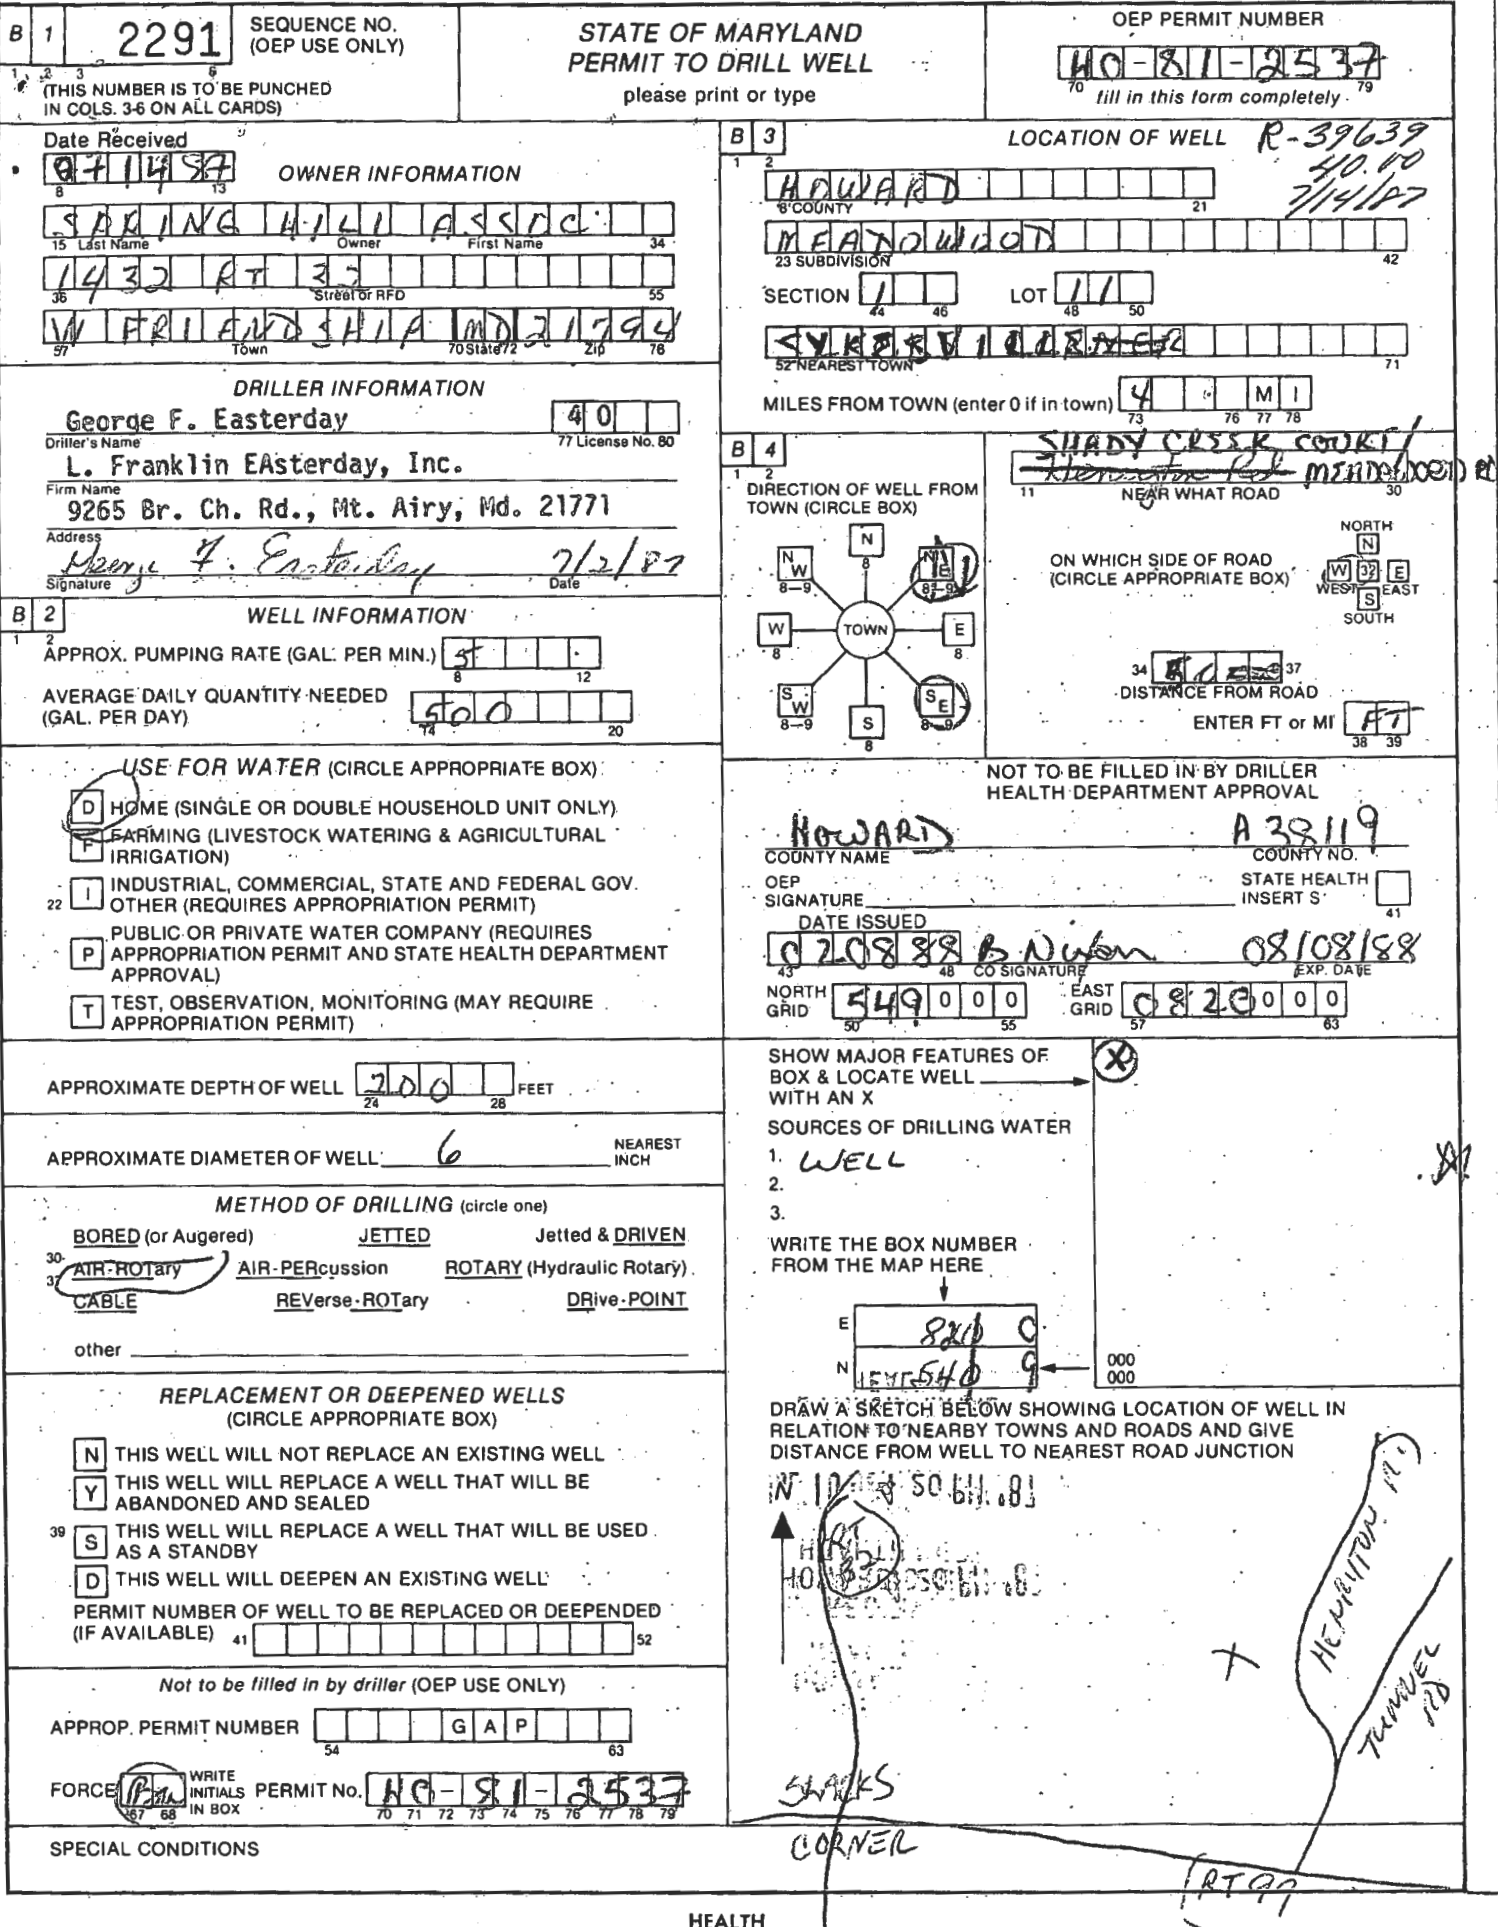 B 1 2291 SEQUENCE NO. (OEP USE ONLY)
1 2 3 6
(THIS NUMBER IS TO BE PUNCHED
IN COLS. 3-6 ON ALL CARDS)
STATE OF MARYLAND
PERMIT TO DRILL WELL
please print or type
OEP PERMIT NUMBER
HO-81-2537
70 79
fill in this form completely
Date Received
071487
8 13
OWNER INFORMATION
SPRING HILL ASSOC.
15 Last Name Owner First Name 34
1432 RT 32
36 Street or RFD 55
W FRIENDSHIP MD 21794
57 Town 70 State 72 Zip 76
DRILLER INFORMATION
George F. Easterday 40
Driller's Name 77 License No. 80
L. Franklin EAsterday, Inc.
Firm Name
9265 Br. Ch. Rd., Mt. Airy, Md. 21771
Address
George F. Easterday 7/2/87
Signature Date
B 2 WELL INFORMATION
1 2
APPROX. PUMPING RATE (GAL. PER MIN.) 5
8 12
AVERAGE DAILY QUANTITY NEEDED
(GAL. PER DAY) 500
14 20
USE FOR WATER (CIRCLE APPROPRIATE BOX)
D HOME (SINGLE OR DOUBLE HOUSEHOLD UNIT ONLY)
F FARMING (LIVESTOCK WATERING & AGRICULTURAL
IRRIGATION)
22 I INDUSTRIAL, COMMERCIAL, STATE AND FEDERAL GOV.
OTHER (REQUIRES APPROPRIATION PERMIT)
P PUBLIC OR PRIVATE WATER COMPANY (REQUIRES
APPROPRIATION PERMIT AND STATE HEALTH DEPARTMENT
APPROVAL)
T TEST, OBSERVATION, MONITORING (MAY REQUIRE
APPROPRIATION PERMIT)
APPROXIMATE DEPTH OF WELL 200 FEET
24 28
APPROXIMATE DIAMETER OF WELL 6 NEAREST
INCH
METHOD OF DRILLING (circle one)
BORED (or Augered) JETTED Jetted & DRIVEN
30- AIR-ROTary AIR-PERcussion ROTARY (Hydraulic Rotary)
37 CABLE REVerse-ROTary DRive-POINT
other
REPLACEMENT OR DEEPENED WELLS
(CIRCLE APPROPRIATE BOX)
N THIS WELL WILL NOT REPLACE AN EXISTING WELL
Y THIS WELL WILL REPLACE A WELL THAT WILL BE
ABANDONED AND SEALED
39 S THIS WELL WILL REPLACE A WELL THAT WILL BE USED
AS A STANDBY
D THIS WELL WILL DEEPEN AN EXISTING WELL
PERMIT NUMBER OF WELL TO BE REPLACED OR DEEPENDED
(IF AVAILABLE) 41 52
Not to be filled in by driller (OEP USE ONLY)
APPROP. PERMIT NUMBER G A P
54 63
FORCE WRITE INITIALS IN BOX PERMIT No. HO-81-2537
67 68 70 71 72 73 74 75 76 77 78 79
SPECIAL CONDITIONS
B 3 LOCATION OF WELL R-39639
1 2 40.00
7/14/87
HOWARD
8 COUNTY 21
MEADOWOOD
23 SUBDIVISION 42
SECTION 1 LOT 11
44 46 48 50
SYKESVILLE
52 NEAREST TOWN 71
MILES FROM TOWN (enter 0 if in town) 4 M I
73 76 77 78
B 4 SHADY CREEK COURT/
1 2 MEADOWOOD RD
11 NEAR WHAT ROAD 30
DIRECTION OF WELL FROM
TOWN (CIRCLE BOX)
N
8
NW NE
8-9 8-9
W TOWN E
8 8
SW SE
8-9 8-9
S
8
ON WHICH SIDE OF ROAD
(CIRCLE APPROPRIATE BOX)
NORTH
N
W 32 E
WEST EAST
S
SOUTH
34 37
DISTANCE FROM ROAD
ENTER FT or MI FT
38 39
NOT TO BE FILLED IN BY DRILLER
HEALTH DEPARTMENT APPROVAL
HOWARD A 38119
COUNTY NAME COUNTY NO.
OEP
SIGNATURE
STATE HEALTH
INSERT S
41
DATE ISSUED
020888 B Nixon 08/08/88
43 48 CO SIGNATURE EXP. DATE
NORTH GRID 549 0 0 0 EAST GRID 0820 0 0 0
50 55 57 63
SHOW MAJOR FEATURES OF
BOX & LOCATE WELL
WITH AN X
X
SOURCES OF DRILLING WATER
1. WELL
2.
3.
WRITE THE BOX NUMBER
FROM THE MAP HERE
E 820 0
N 540 9
000
000
DRAW A SKETCH BELOW SHOWING LOCATION OF WELL IN
RELATION TO NEARBY TOWNS AND ROADS AND GIVE
DISTANCE FROM WELL TO NEAREST ROAD JUNCTION
N
RT 32
HENRYTON RD
TUNNEL RD
X
SLACKS
CORNER
RT 97
HEALTH